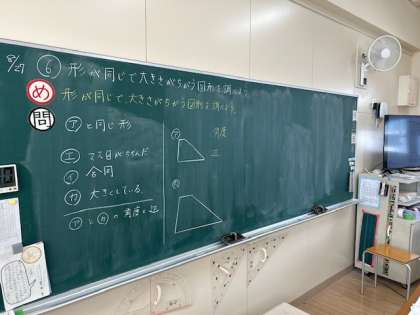 8/27 ⑥ 形が同じで大きさがちがう図形を調べよう。
め 形が同じで、大きさがちがう図形を調べよう。
問 ㋐と同じ形
㋓ マス目がちがった
㋑ 合同
㋕ 大きくしている
㋐と㋕の角度と辺
㋐
角度
㋕